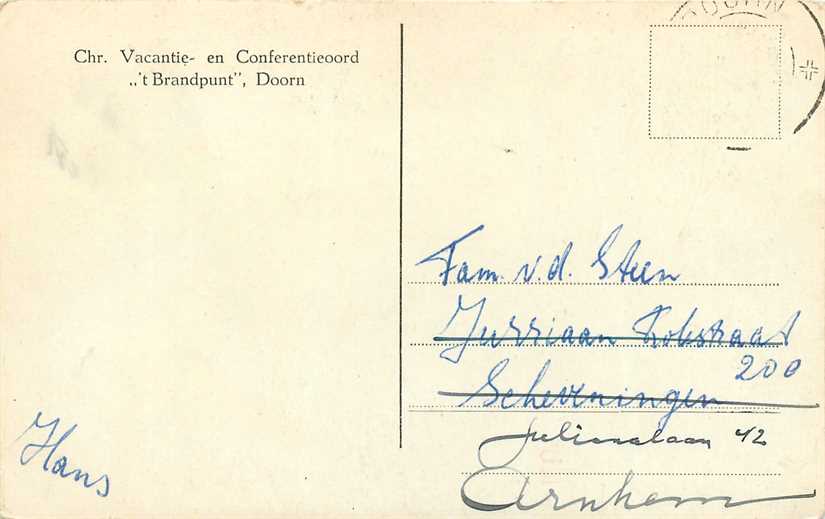 Chr. Vacantie- en Conferentieoord
„'t Brandpunt”, Doorn
DOORN
Fam. v.d. Steen
Jurriaan Kokstraat
200
Scheveningen
Julianalaan 42
Arnhem
Hans